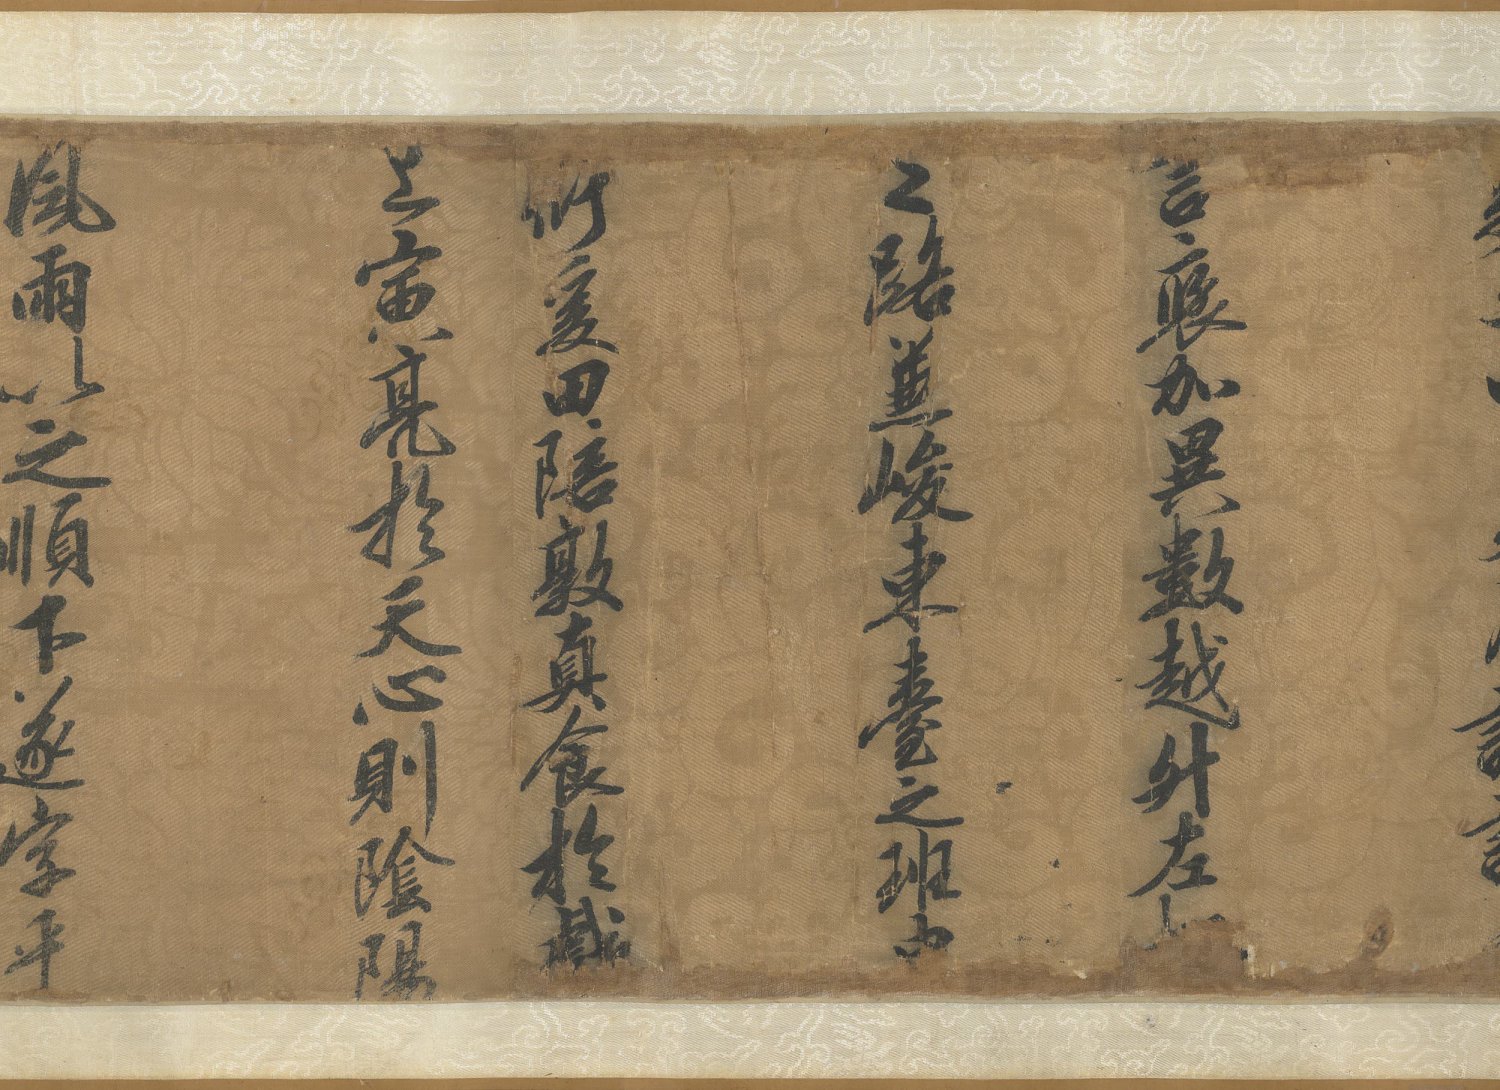 言加異數越升左
之路並峻東臺之班申
衍爰田陪敦真食於戲
上寅亮於天心則陰陽
風雨以之順下遂字平